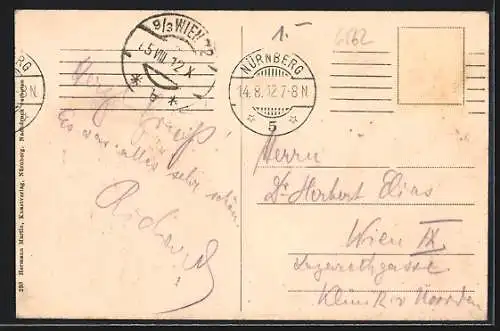 9/3 WIEN
15 VIII 12 X
* b *
1.-
6862
NÜRNBERG
14.8.12.7-8N
5
Herzl. Grüße!
Es war alles sehr schön.
Richard
Herrn
Dr Herbert Elias
Wien IX
Lazarethgasse
Klinik v. Noorden
250 Hermann Martin, Kunstverlag, Nürnberg. Nachdruck verboten